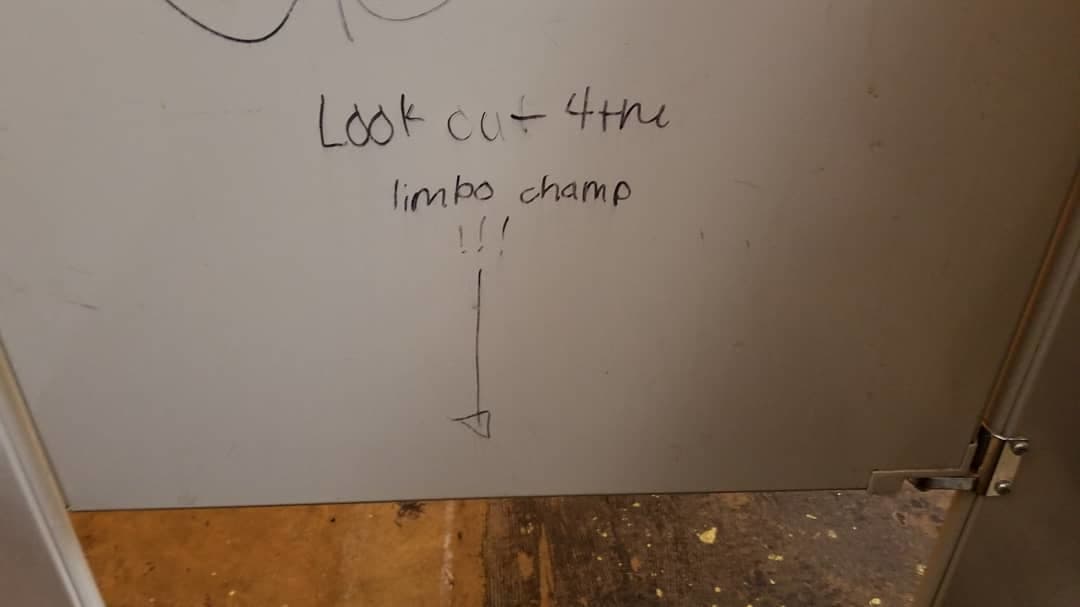 Look out 4 the
limbo champ
!!!